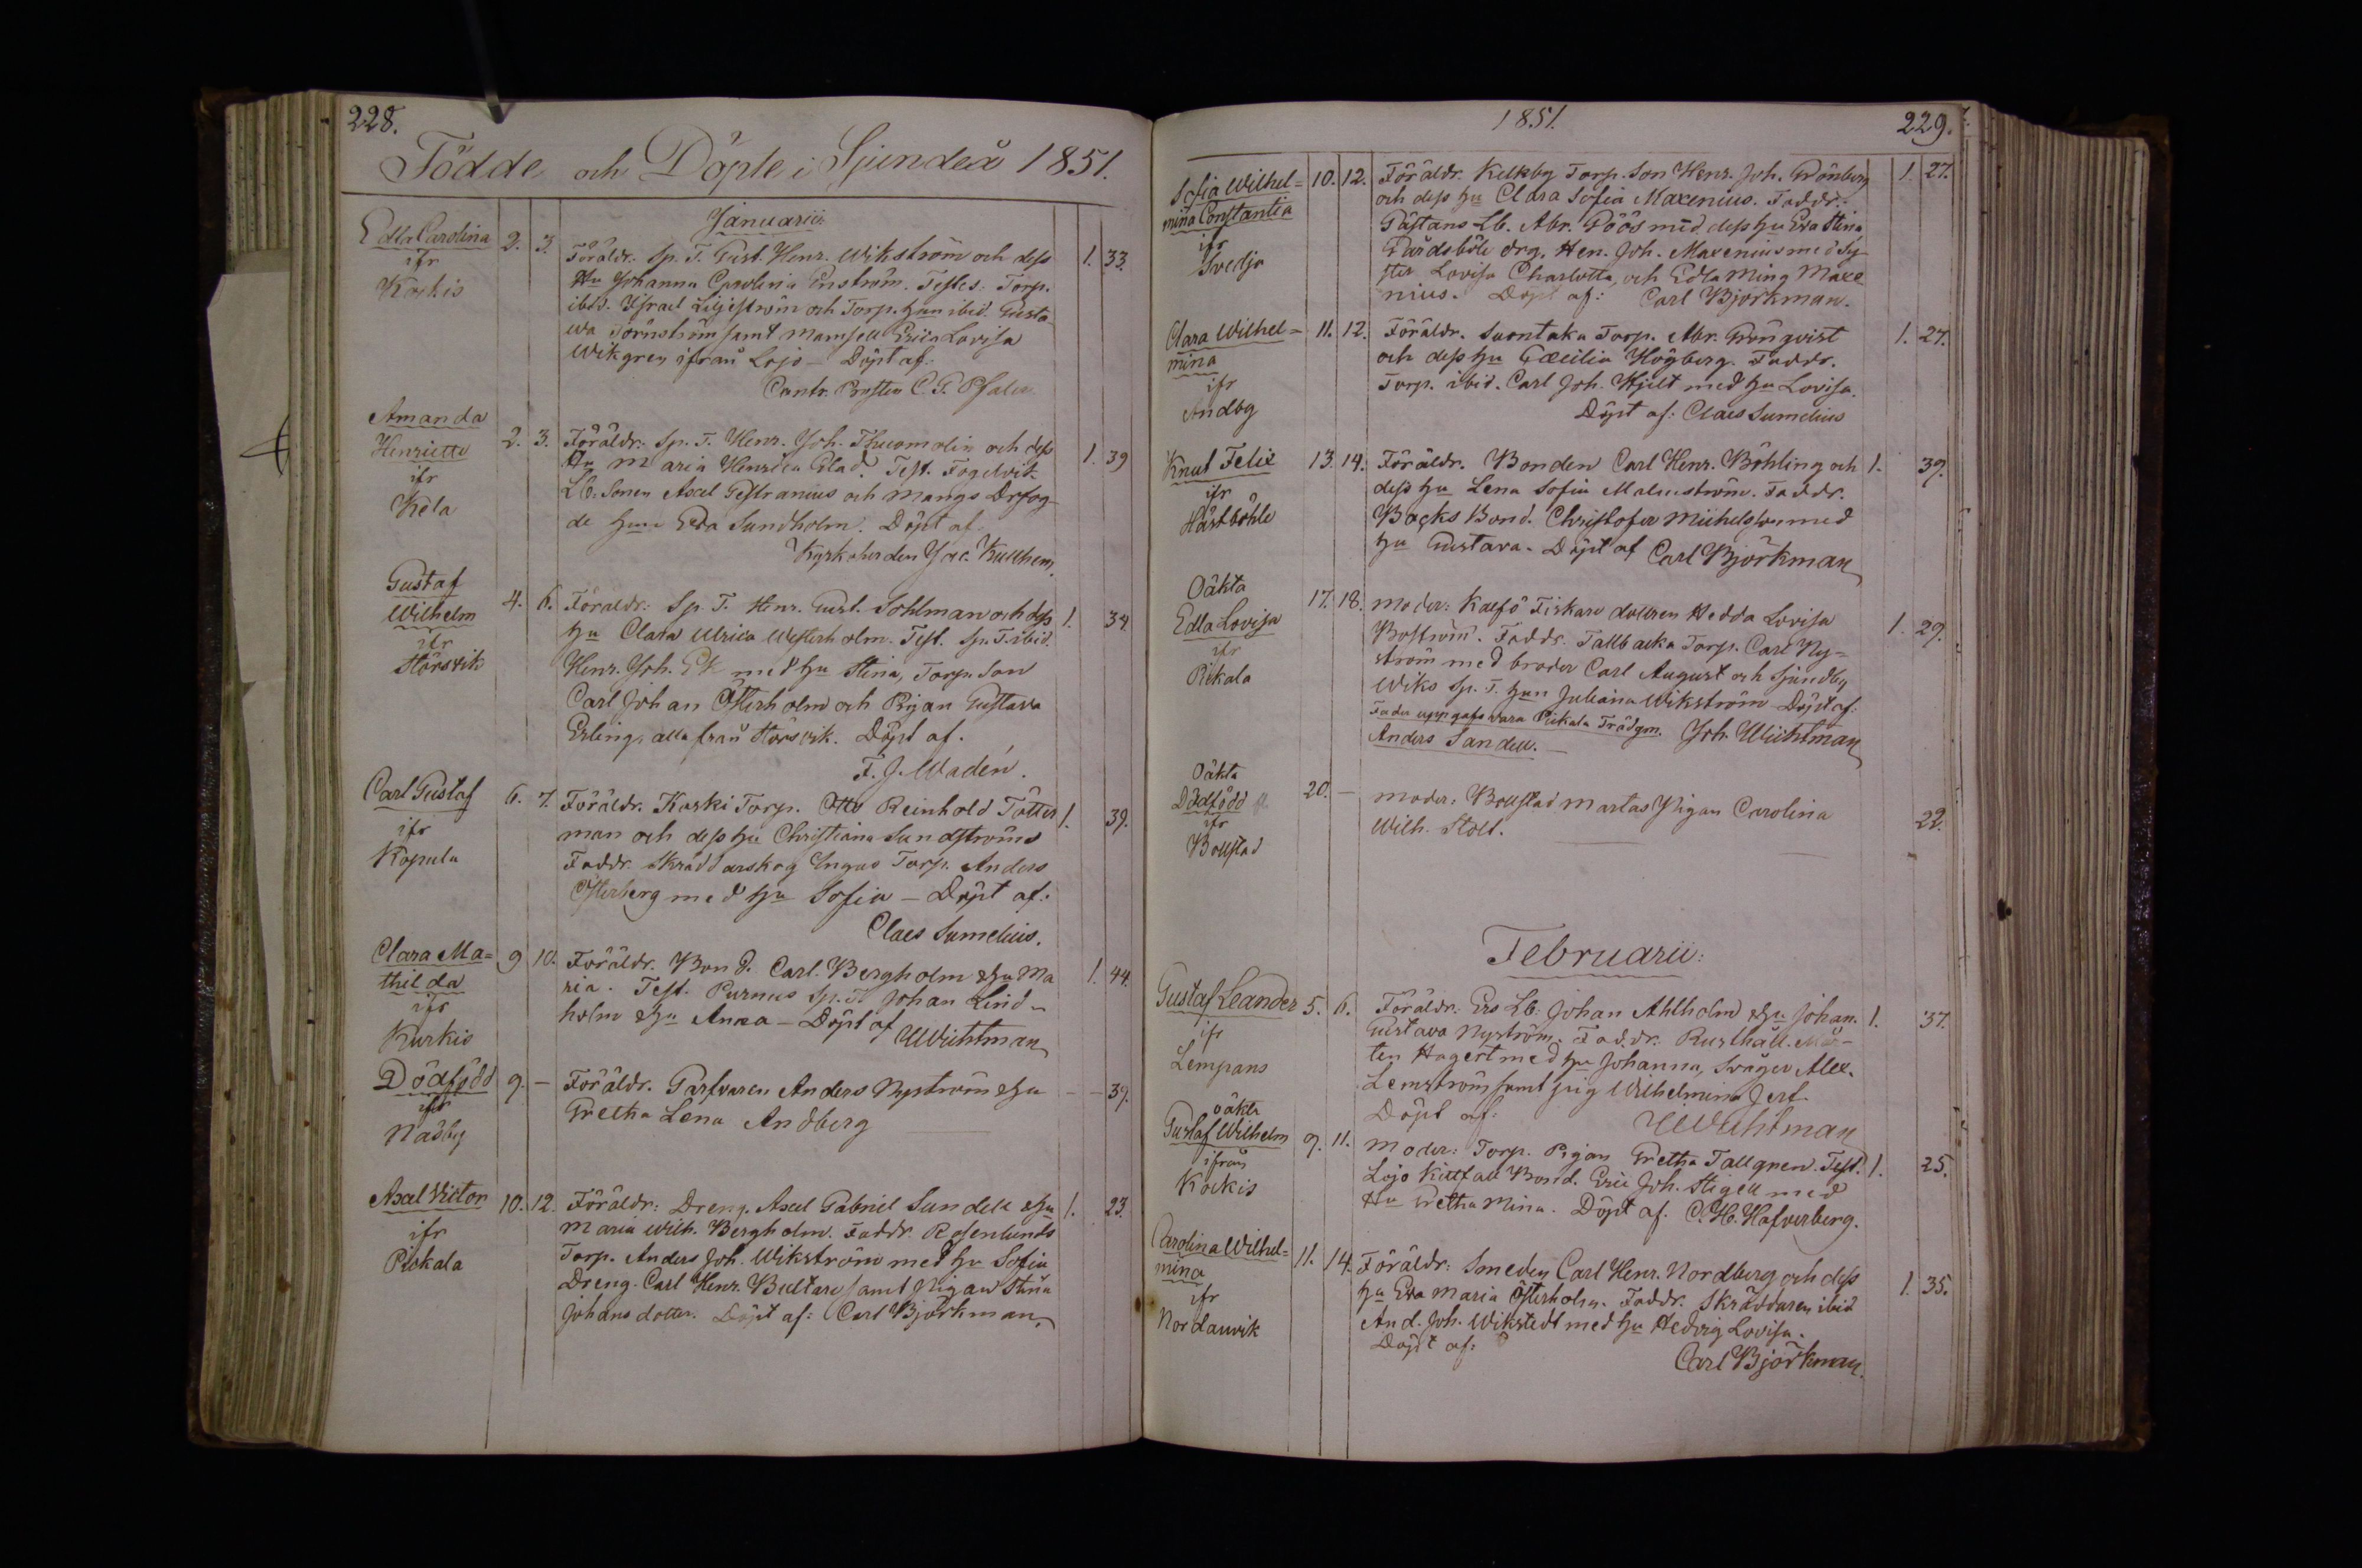 228.
Födde och Döpte i Sjundeå 1851.
Januarii:
Edla Carolina 2. 3. Föräldr. Sp. T. Gust. Henr. Wikström och dess 1. 33.
ifr Hu Johanna Carolina Enström. Testes: Torp.
Kockis ibid. Israel Liljeström och Torp. hun ibid. Gusta
va Törnström samt Mamsell Erica Lovisa
Wikgren ifrån Lojo – Döpt af:
Contr. Prosten C. G.
Amanda
Henriette 2. 3. Föräldr. Sp. T. Henr. Joh. och dess 1. 39
ifr Hu Maria Henrica Glad. Test. Fogelvik
Kela Lb: Sonen Axel Gestranius och Mangs Drfog-
de hun Eva Sundholm. Döpt af
Kyrkoherden Jac. Kullhem.
Gustaf
Wilhelm 4. 6. Föräldr: Sp. T. Henr. Gust. Sohlman och dess 1. 34.
ifr hu Clara Ulrica Westerholm. Test. Sp. T. ibid.
Störsvik Henr. Joh. Ek med hu Stina, Torp. Son
Carl Johan Österholm och Pigan Gustava
Erling, alla från Störsvik. Döpt af.
F. J. Wadén.
Carl Gustaf 6. 7. Föräldr. Koski Torp. Otto Reinhold Totter 1. 39.
ifr man och dess hu Christiana Sundströms
Kopula Faddr. Skräddarskog Ingas Torp. Anders
Österberg med hu Sofia – Döpt af:
Claes Sumelius.
Clara Ma= 9 10. Föräldr. Bond. Carl Bergholm & hu Ma 1. 44.
thilda ria. Test. Purnus Sp. T. Johan Lind-
ifr holm & hu Anna – Döpt af
Kurkis Wichtman
Dödfödd 9. – Föräldr. Garfvaren Anders Nyström & hu – – 39.
ifr Gretha Lena Andberg
Näsby
Axel Victor 10. 12. Föräldr: Dreng. Axel Gabriel Sundell & hu 1. 23.
ifr Maria Wilh. Bergholm. Faddr. Rosenlunds
Pickala Torp. Anders Joh. Wikström med hu Sofia
Dreng. Carl Henr. Bultare samt Pigan Stina
Johansdotter. Döpt af: Carl Björkman
1851. 229.
Sofia Wilhel= 10. 12. Föräldr. Kelkby Torp. Son Henr. Joh. Grönberg 1. 27.
mina Constantia och dess hu Clara Sofia Maxenius. Faddr.
ifr Påstans Lb. Abr. Göös med dess hu Eva Stina
Svedja Gårdsböle drg. Hen. Joh. Maxenius med Sy-
ster Lovisa Charlotta, och Edla Mina Maxe
nius. Döpt af: Carl Björkman.
Clara Wilhel= 11. 12. Föräldr. Suontaka Torp. Abr. Grönqvist 1. 27.
mina och dess hu Cæcilia Högberg. Faddr.
ifr Torp. ibid. Carl Joh. Hjelt med hu Lovisa.
Andby Döpt af: Claes Sumelius
Knut Felix 13. 14. Föräldr. Bonden Carl Henr. Böhling och 1. 39.
ifr dess hu Lena Sofia Malmström. Faddr.
Hästböhle Backs Bond. Christofer Michelsson med
hu Gustava. Döpt af Carl Björkman
Oäkta
Edla Lovisa 17. 18. Moder: Kalfö Fiskare dottren Hedda Lovisa 1. 29.
ifr Boström. Faddr. Tallbacka Torp. Carl Ny=
Pikala ström med broder Carl August och Sjundby
Wiks Sp. T. hun Juliana Wikström Döpt af:
Fader uppgafs vara Pikala Trädgm. Joh. Wichtman
Anders Sandell. –
Oäkta
Dödfödd 20. – Moder: Bollstad Martas Pigan Carolina 22.
ifr Wilh. Stolt.
Bollstad
Februarii:
Gustaf Leander 5. 6. Föräldr. Ers Lb: Johan Ahlholm & hu Johan. 1. 37.
ifr Gustava Nyström. Faddr. Rusthåll. Mår-
Lempans ten Hagert med hu Johanna, Svåger Alex.
Lemström samt pig Wilhelmina Jerf.
Döpt af: Wichtman
oäkta
Gustaf Wilhelm 9. 11. Moder: Torp. Pigan Gretha Tallgren. Test. 1. 25.
ifrån Lojo Kittfall Bond. Eric Joh. Stigell med
Kockis Hu Gretha Mina. Döpt af. C. H. Hafverberg.
Carolina Wilhel= 11. 14. Föräldr: Smeden Carl Henr. Nordberg och dess 1. 35.
mina hu Eva Maria Österholm. Faddr. Skräddaren ibid
ifr And. Joh. Wikstedt med hu Hedvig Lovisa.
Nordanvik Döpt af:
Carl Björkman.